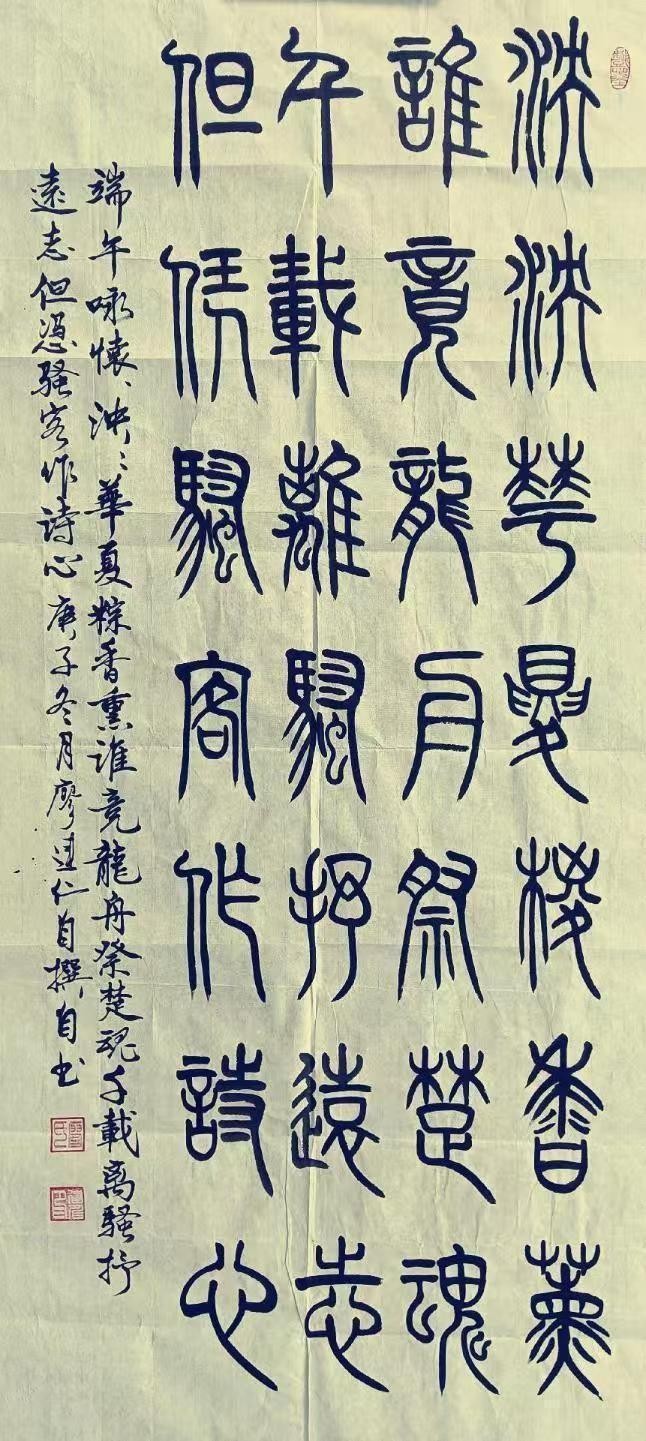 泱泱華夏粽香薰
誰竟龍舟祭楚魂
千載離騷抒遠志
但凭騷客作詩心
端午咏懷、泱〻華夏粽香熏誰竞龍舟祭楚魂千載离騷抒
遠志但憑騷客作詩心庚子冬月廖達仁自撰自书